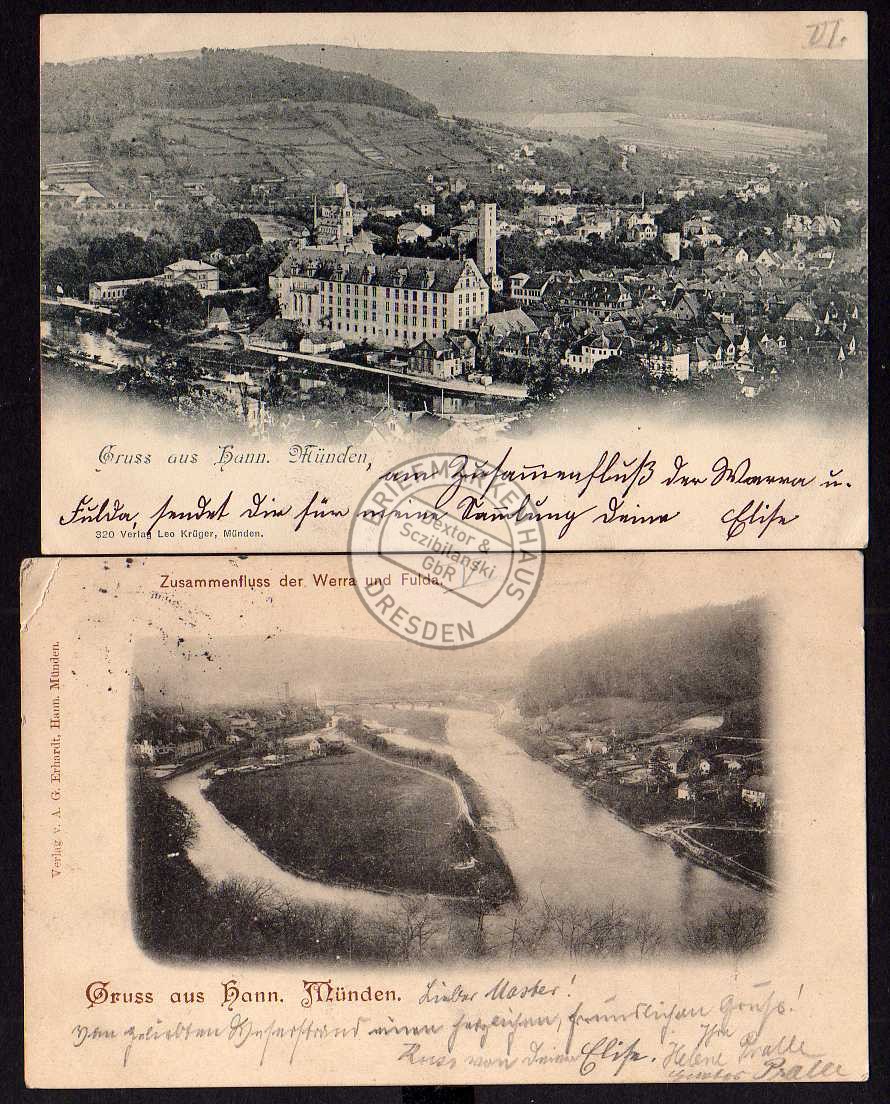 VI.
Gruss aus Hann. Münden, am Zusammenfluß der Warra u.
Fulda, sendet Dir für meine Sammlung Deine Elise
320 Verlag Leo Krüger, Münden.
BRIEFMARKENHAUS
Dextor &
Sczibilanski
GbR
DRESDEN
Zusammenfluss der Werra und Fulda.
Verlag v. A. G. Erhardt, Hann. Münden.
Gruss aus Hann. Münden. Lieber
Vom geliebten Weserstrand einen herzlichen, freundlichen Gruß!
Ihre
von Deiner Elise. Helene Pralle
Pralle